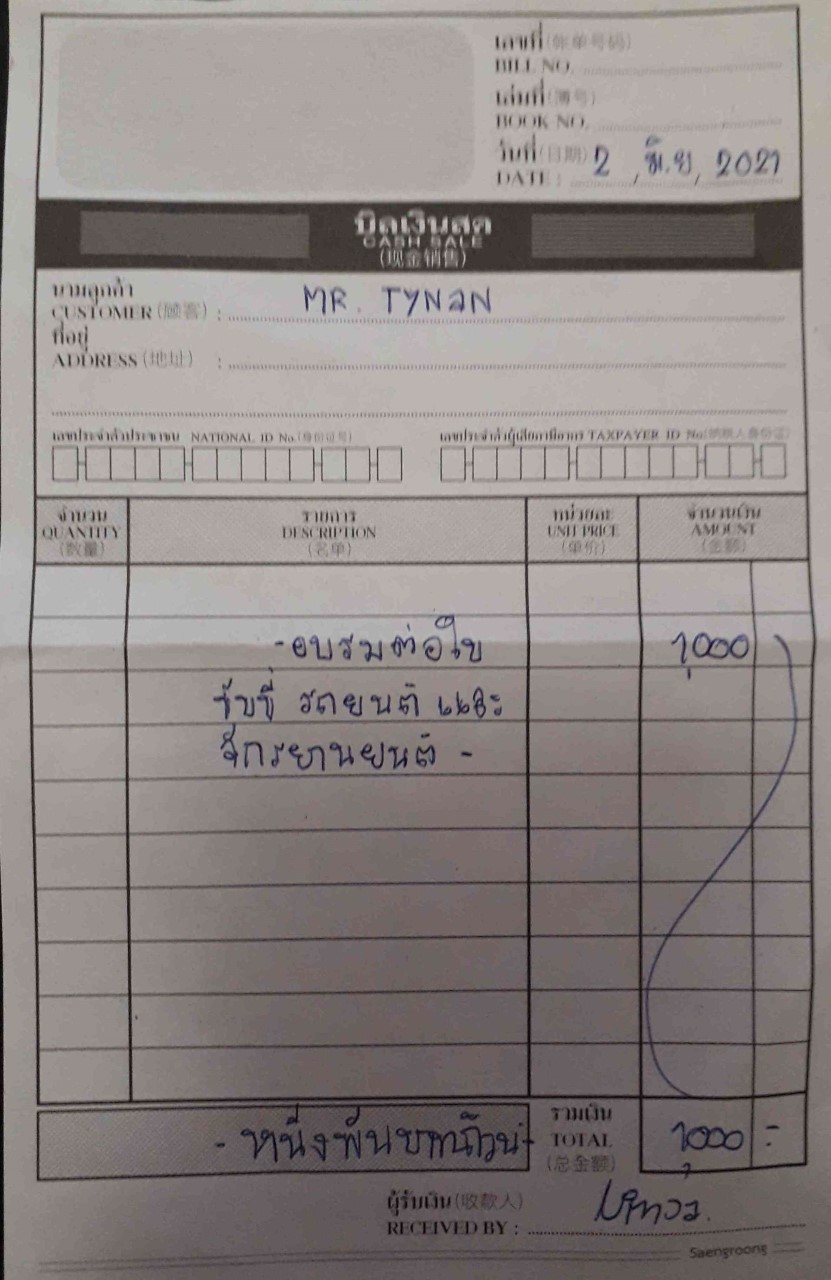 เลขที่ (帐单号码)
BILL NO.
เล่มที่ (簿号)
BOOK NO.
วันที่ (日期) 2 , มิ.ย, 2021
DATE :
บิลเงินสด
CASH SALE
(现金销售)
นามลูกค้า
CUSTOMER (顾客) : MR. TYNAN
ที่อยู่
ADDRESS (地址) :
เลขประจำตัวประชาชน NATIONAL ID No. (身份证号) เลขประจำตัวผู้เสียภาษีอากร TAXPAYER ID No. (纳税人身份证)
จำนวน รายการ หน่วยละ จำนวนเงิน
QUANTITY DESCRIPTION UNIT PRICE AMOUNT
(数量) (名单) (单价) (金额)
-อบรมต่อใบ 1,000
ขับขี่ รถยนต์ และ
จักรยานยนต์ -
รวมเงิน
- หนึ่งพันบาทถ้วน - TOTAL 1,000 :-
(总金额)
ผู้รับเงิน (收款人)
RECEIVED BY :
Saengroong